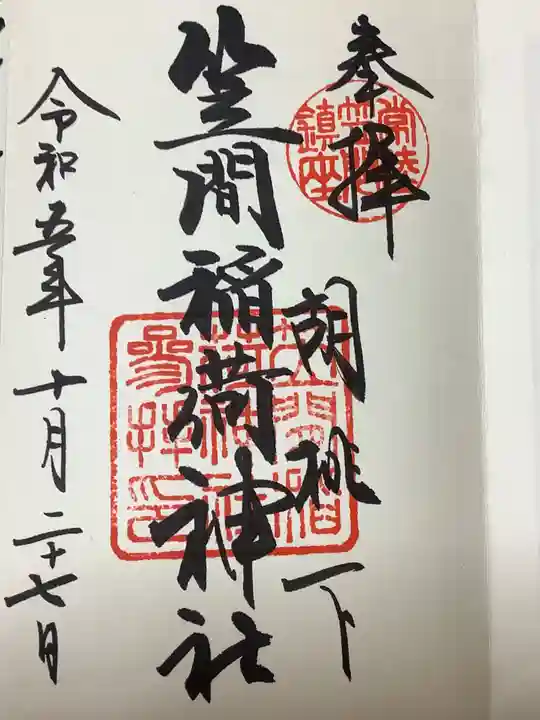 奉拝
常陸
笠間
鎮座
胡桃下
笠間稲荷神社
笠間稲
荷神社
參拝印
令和五年十月二十七日